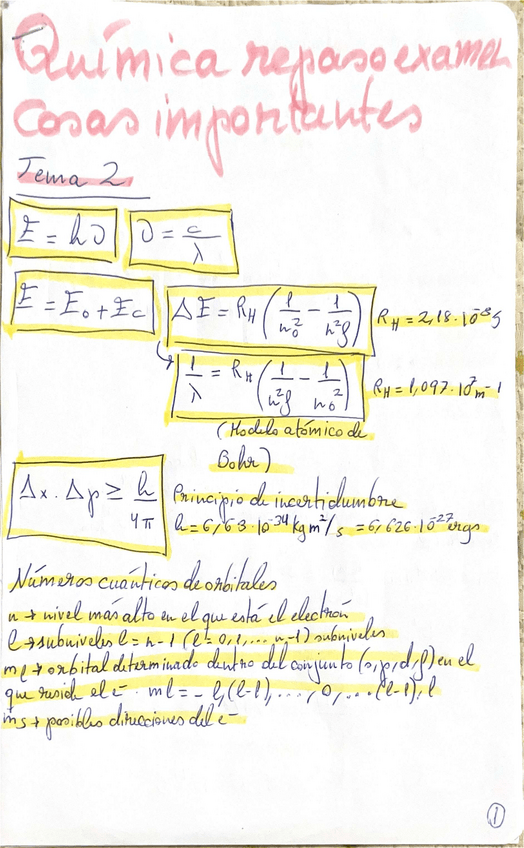 Química repaso examen
Cosas importantes
Tema 2
E = hν    ν = c/λ
E = E₀ + Ec    ΔE = R_H (1/n₀² − 1/n²f)    R_H = 2,18·10⁻⁸ J
1/λ = R_H (1/n²f − 1/n₀²)    R_H = 1,097·10⁷ m⁻¹
(Modelo atómico de
Bohr)
Δx · Δp ≥ h/4π    Principio de incertidumbre
h = 6,63·10⁻³⁴ kg m²/s = 6,626·10⁻²⁷ ergs
Números cuánticos de orbitales
n → nivel más alto en el que está el electrón
l → subniveles l = n-1 (l = 0, 1, ... n-1) subniveles
ml → orbital determinado dentro del conjunto (s, p, d, f) en el
que reside el e⁻. ml = -l, (l-1), ..., 0, ... (l-1), l
ms → posibles direcciones del e⁻
1